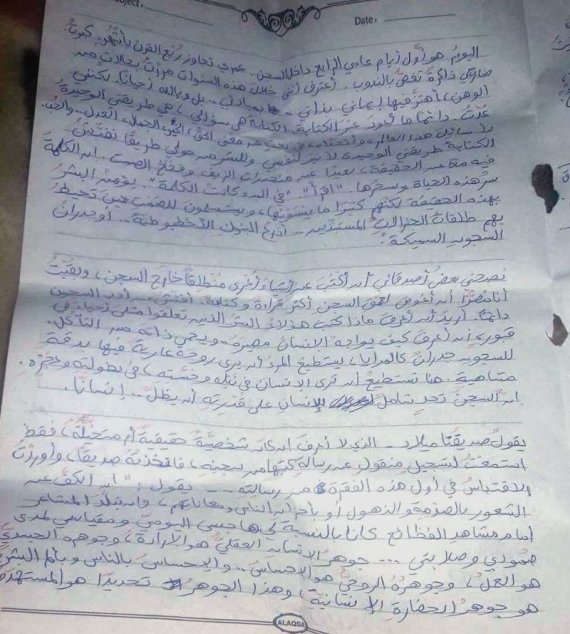 Subject:
Date:
اليومُ هو أوّلُ أيام عامي الرابع داخل السجن. عمري تجاوز رُبع القرن بأشهر. كبرتُ
صارلي ذاكرة تغصّ بالندوب. أعترف أنني خلال هذه السنوات مررتُ بحالات من
الوهن، اهتز فيها إيماني بذاتي .. بمبادئي .. بل وبالله أحيانًا. لكنني
عُدتُ. دائمًا ما أعود عبر الكتابة. الكتابة هي سؤالي، هي طريقتي الوحيدة
الكتابة طريقتي الوحيدة لأنير لنفسي وللبشر من حولي طريقًا نفتش
فيه معًا عن الحقيقة، بعيدًا عن مخدرات الزيف وفخاخ الصمت. إنه الكلمة
سرّ هذه الحياة وسحرها. "اقرأ" .. "في البدء كانت الكلمة" .. يؤمن البشر
بهذه الحقيقة لكنهم كثيرًا ما ينسونها، ويستسلمون للصمت حين تحيط
بهم طلقات الجنرالات المستبدين .. أذرع البنوك الأخطبوطية .. أو جدران
السجون السميكة.
نصحني بعضُ أصدقائي أن أكتبَ عن أشياء أخرى منطلقًا خارج السجن، وبقيتُ
أنا مُصرًا أن أغوص لعمق السجن أكثر قراءة وكتابة. أفتش .. أدب السجون
دائمًا. أريد أن أعرف ماذا كتب هؤلاء البشر الذين تعلقوا مثلي أحياء في
قبور، أن أعرف كيف يواجه الإنسان مصيره .. ويحمي ذاته من التآكل.
للسجون جدران كالمرايا، يستطيع المرء أن يرى روحه عارية فيها بدقة
متناهية. هنا نستطيع أن نرى الإنسان في نبله وخسّته، في بطولته وعجزه.
إن السجن تحدٍ شامل لإنسان على قدرته أن يظل .. إنسانًا.
يقول صديقُنا ميلاد .. الذي لا أعرف إن كان شخصيةً حقيقيةً أم متخيلة، فقط
استمعتُ لتسجيل منقول عن رسالة كتبها من سجنه، فاتخذته صديقًا، وأوردتُ
الاقتباس في أول هذه الفقرة من رسالته .. يقول: "إن الكفّ عن
الشعور بالصدمة والذهول أو بأحزان الناس ومعاناتهم، وإن تبلّد المشاعر
أمام مشاهد الفظائع كانا بالنسبة لي هاجسي اليومي ومقياسي لمدى
صمودي وصلابتي .... جوهر الإنسان العقلي هو الإرادة، وجوهره الجسدي
هو العمل، وجوهره الروحي هو الإحساس .. والإحساس بالناس وبألم البشرية
هو جوهر الحضارة الإنسانية، وهذا الجوهر تحديدًا هو المستهدف
ALAQSA